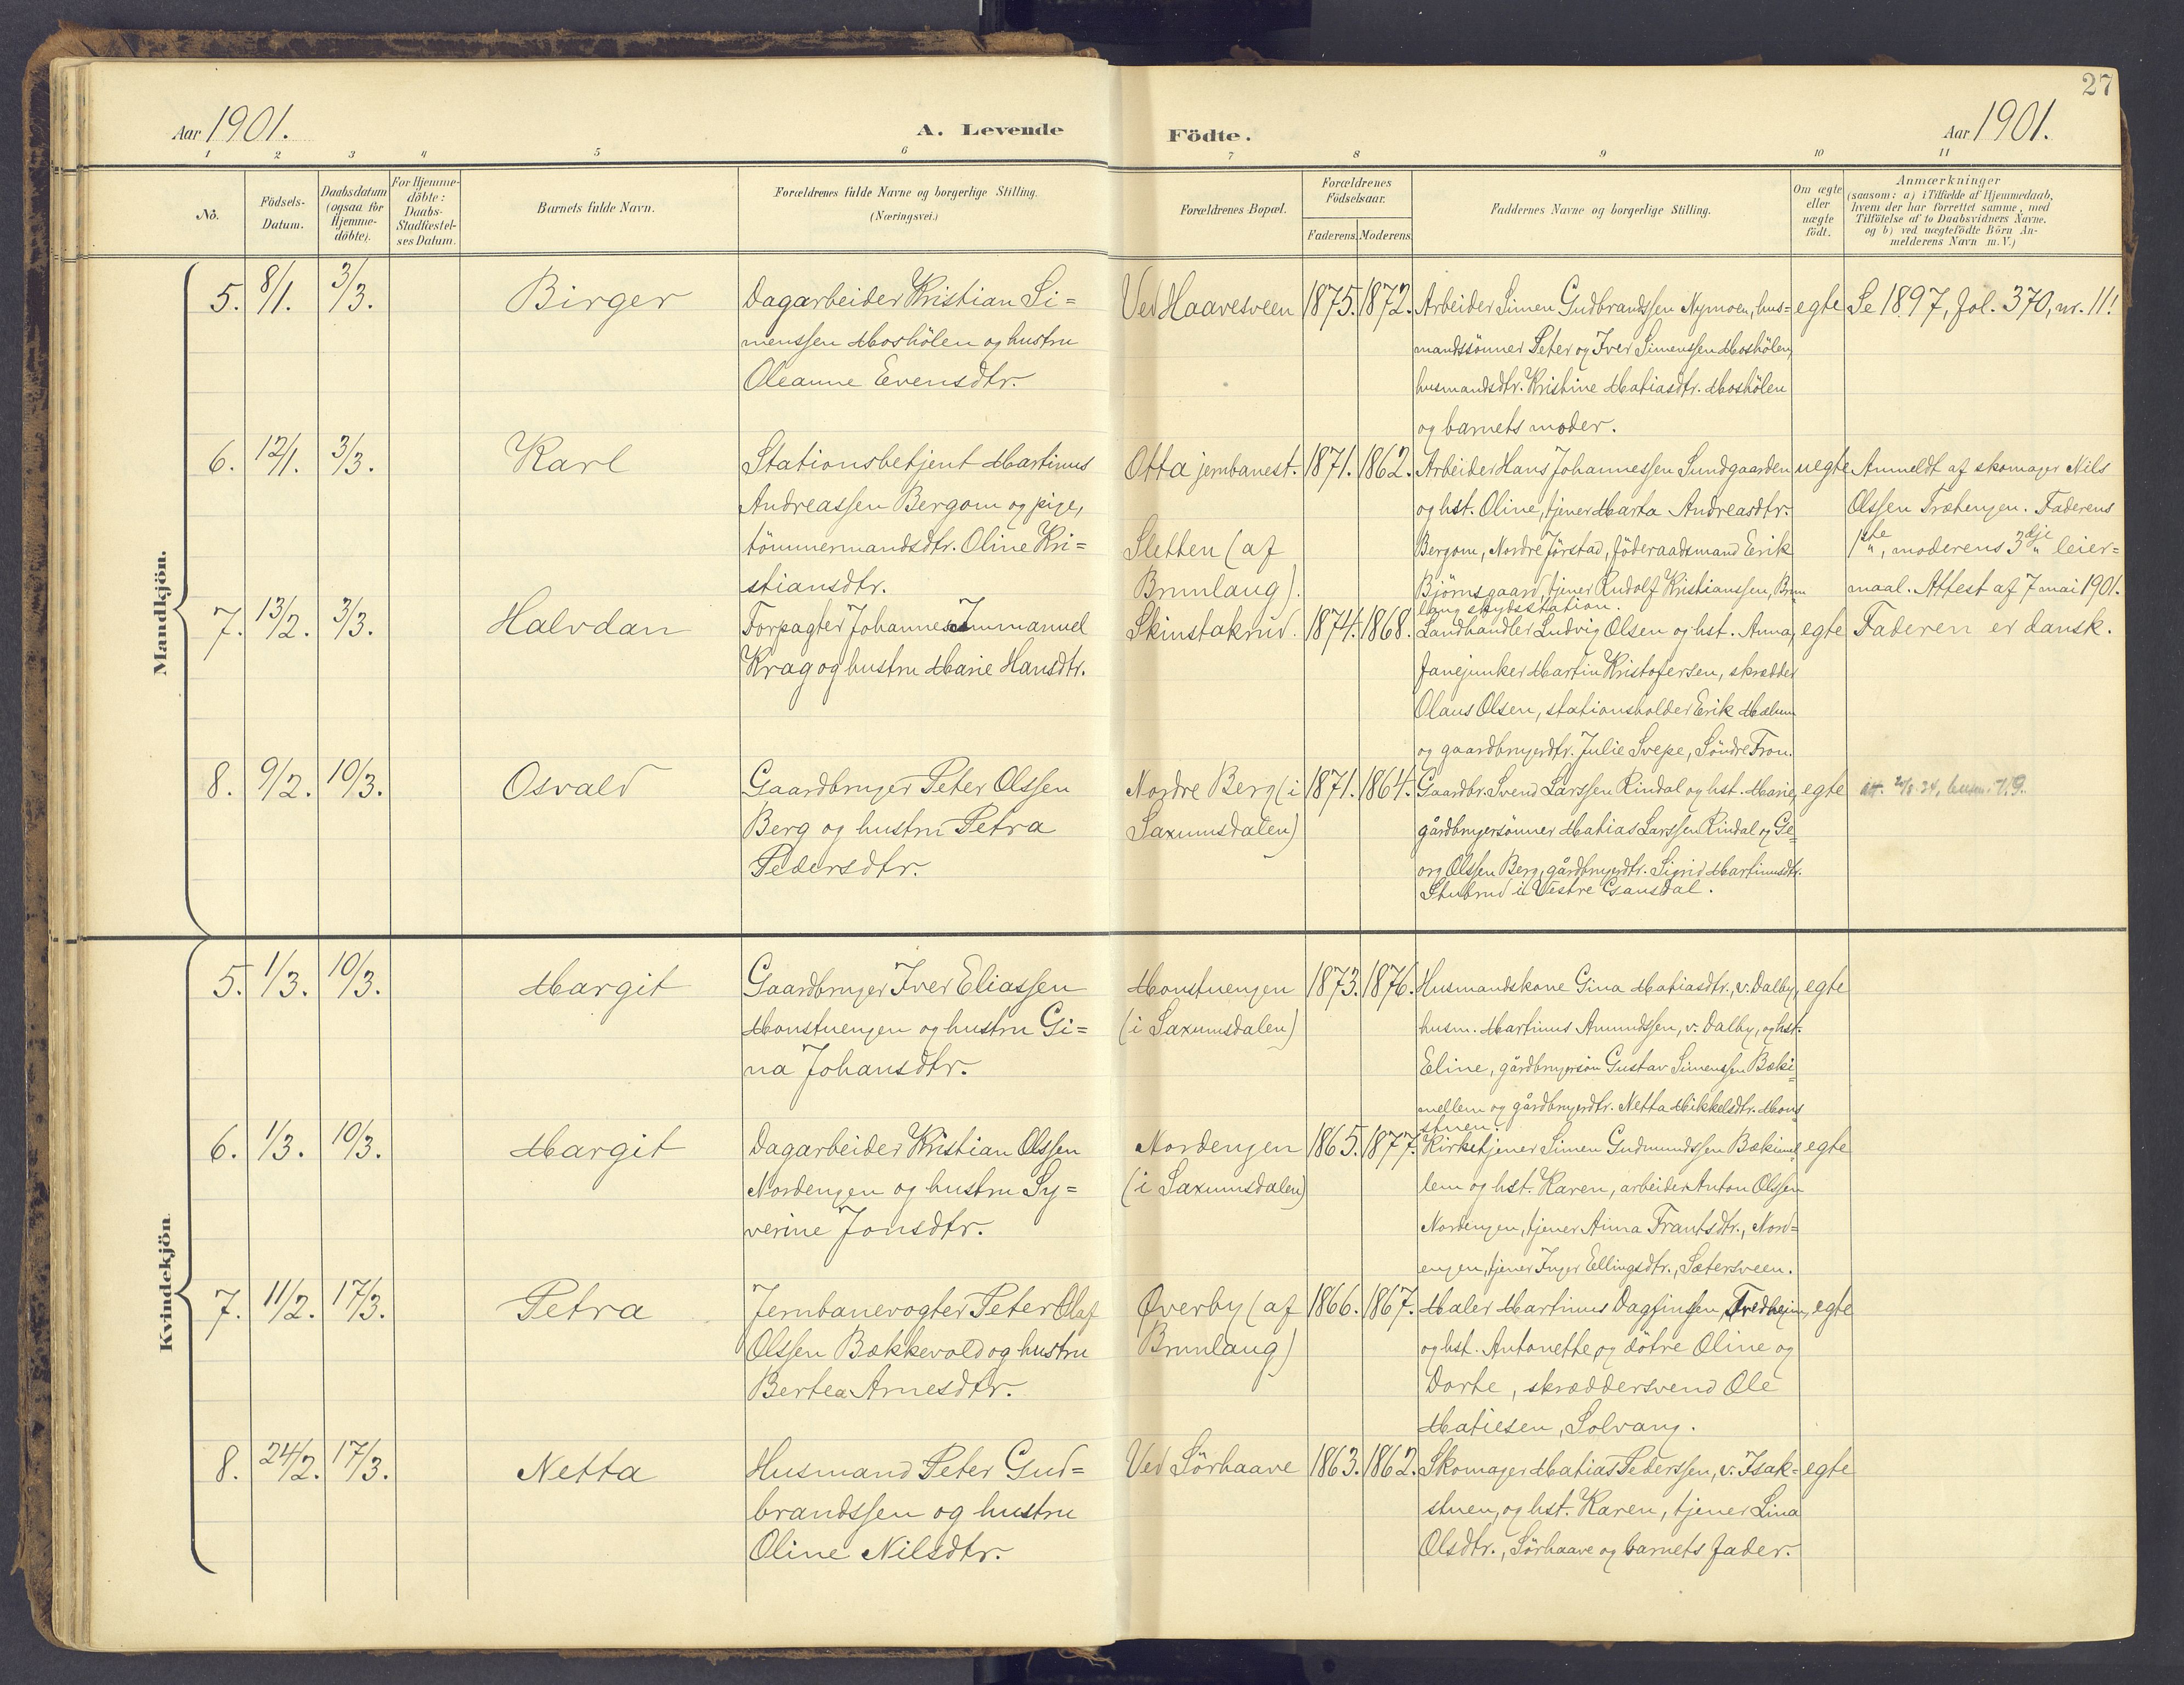 27
Aar 1901.
A. Levende
Födte.
Aar 1901.
1 2 3 4 5 6 7 8 9 10 11
No.
Födsels-
Datum.
Daabsdatum
(ogsaa for
Hjemme-
döbte).
For Hjemme-
döbte:
Daabs-
Stadfæstel-
ses Datum.
Barnets fulde Navn.
Forældrenes fulde Navne og borgerlige Stilling.
(Næringsvei.)
Forældrenes Bopæl.
Forældrenes
Födselsaar.
Faderens. Moderens.
Faddernes Navne og borgerlige Stilling.
Om ægte
eller
uægte
födt.
Anmærkninger
(saasom: a) i Tilfælde af Hjemmedaab,
hvem der har forrettet samme, med
Tilföielse af to Daabsvidners Navne,
og b) ved uægtefödte Börn An-
melderens Navn m.V.)
Mandkjön.
5. 8/1. 3/3. Birger
Dagarbeider Kristian Si=
menssen Moshölen og hustru
Oleanne Evensdtr.
Ved Haavesveen
1875. 1872.
Arbeider Simen Gudbrandssen Nymoen, hus=
mandssönner Peter og Iver Simenssen Moshölen,
husmandsdtr. Kristine Matiasdtr. Moshölen
og barnets moder.
egte
Se 1897, fol. 370, nr. 11!
6. 12/1. 3/3. Karl
Stationsbetjent Martinus
Andreassen Bergom og pige,
tömmermandsdtr. Oline Kri=
stiansdtr.
Otta jernbanest.
Sletten (af
Brunlaug).
1871. 1862.
Arbeider Hans Johannessen Sundgaarden
og hst. Oline, tjener Marta Andreasdtr.
Bergom, Nordre Jörstad, föderaadsmand Erik
Björnsgaard, tjener Rudolf Kristianssen, Brun
laug skydsstation.
uegte
Anmeldt af skomager Nils
Olssen Trætengen. Faderens
1ste, moderens 3dje leier=
maal. Attest af 7 mai 1901.
7. 13/2. 3/3. Halvdan
Forpagter Johannes Immanuel
Krag og hustru Marie Hansdtr.
Skinstakrud.
1874. 1868.
Landhandler Ludvig Olsen og hst. Anna,
fanejunker Martin Kristofersen, skrædder
Olaus Olsen, stationsholder Erik Mælum
og gaardbrugerdtr. Julie Svepe, Söndre Fron.
egte
Faderen er dansk.
8. 9/2. 10/3. Osvald
Gaardbruger Peter Olssen
Berg og hustru Petra
Pedersdtr.
Nordre Berg (i
Saxumsdalen)
1871. 1864.
Gaardbr. Svend Larssen Rindal og hst. Marie,
gårdbrugersönner Matias Larssen Rindal og Ge=
org Olssen Berg, gårdbrugerdtr. Sigrid Martinusdtr.
Stubrud i Vestre Gausdal.
egte
Kvindekjön.
5. 1/3. 10/3. Margit
Gaardbruger Iver Eliassen
Monstuengen og hustru Gi=
na Johansdtr.
Monstuengen
(i Saxumsdalen)
1873. 1876.
Husmandskone Gina Matiasdtr., v. Dalby,
husm. Martinus Amundssen, v. Dalby, og hst.
Eline, gårdbrugersön Gustav Simenssen Bæki=
mellem og gårdbrugerdtr. Netta Mikkelsdtr. Mon
stuen.
egte
6. 1/3. 10/3. Margit
Dagarbeider Kristian Olssen
Nordengen og hustru Sy=
verine Jonsdtr.
Nordengen
(i Saxumsdalen)
1865. 1877.
Kirketjener Simen Gudmundssen Bækimel
lem og hst. Karen, arbeider Anton Olssen
Nordengen, tjener Anna Frantsdtr., Nord=
engen, tjener Inger Ellingsdtr., Sætersveen.
egte
7. 11/2. 17/3. Petra
Jernbanevogter Peter Olaf
Olssen Bækkevold og hustru
Bertea Arnesdtr.
Overby (af
Brunlaug)
1866. 1867.
Maler Martinus Dagfinsen, Fredheim,
og hst. Antonette, og dötre Oline og
Dorte, skræddersvend Ole
Matiesen, Solvang.
egte
8. 24/2. 17/3. Netta
Husmand Peter Gud=
brandssen og hustru
Oline Nilsdtr.
Ved Sörhaave
1863. 1862.
Skomager Matias Pederssen, v. Isak=
stuen, og hst. Karen, tjener Lina
Olsdtr., Sörhaave og barnets fader.
egte